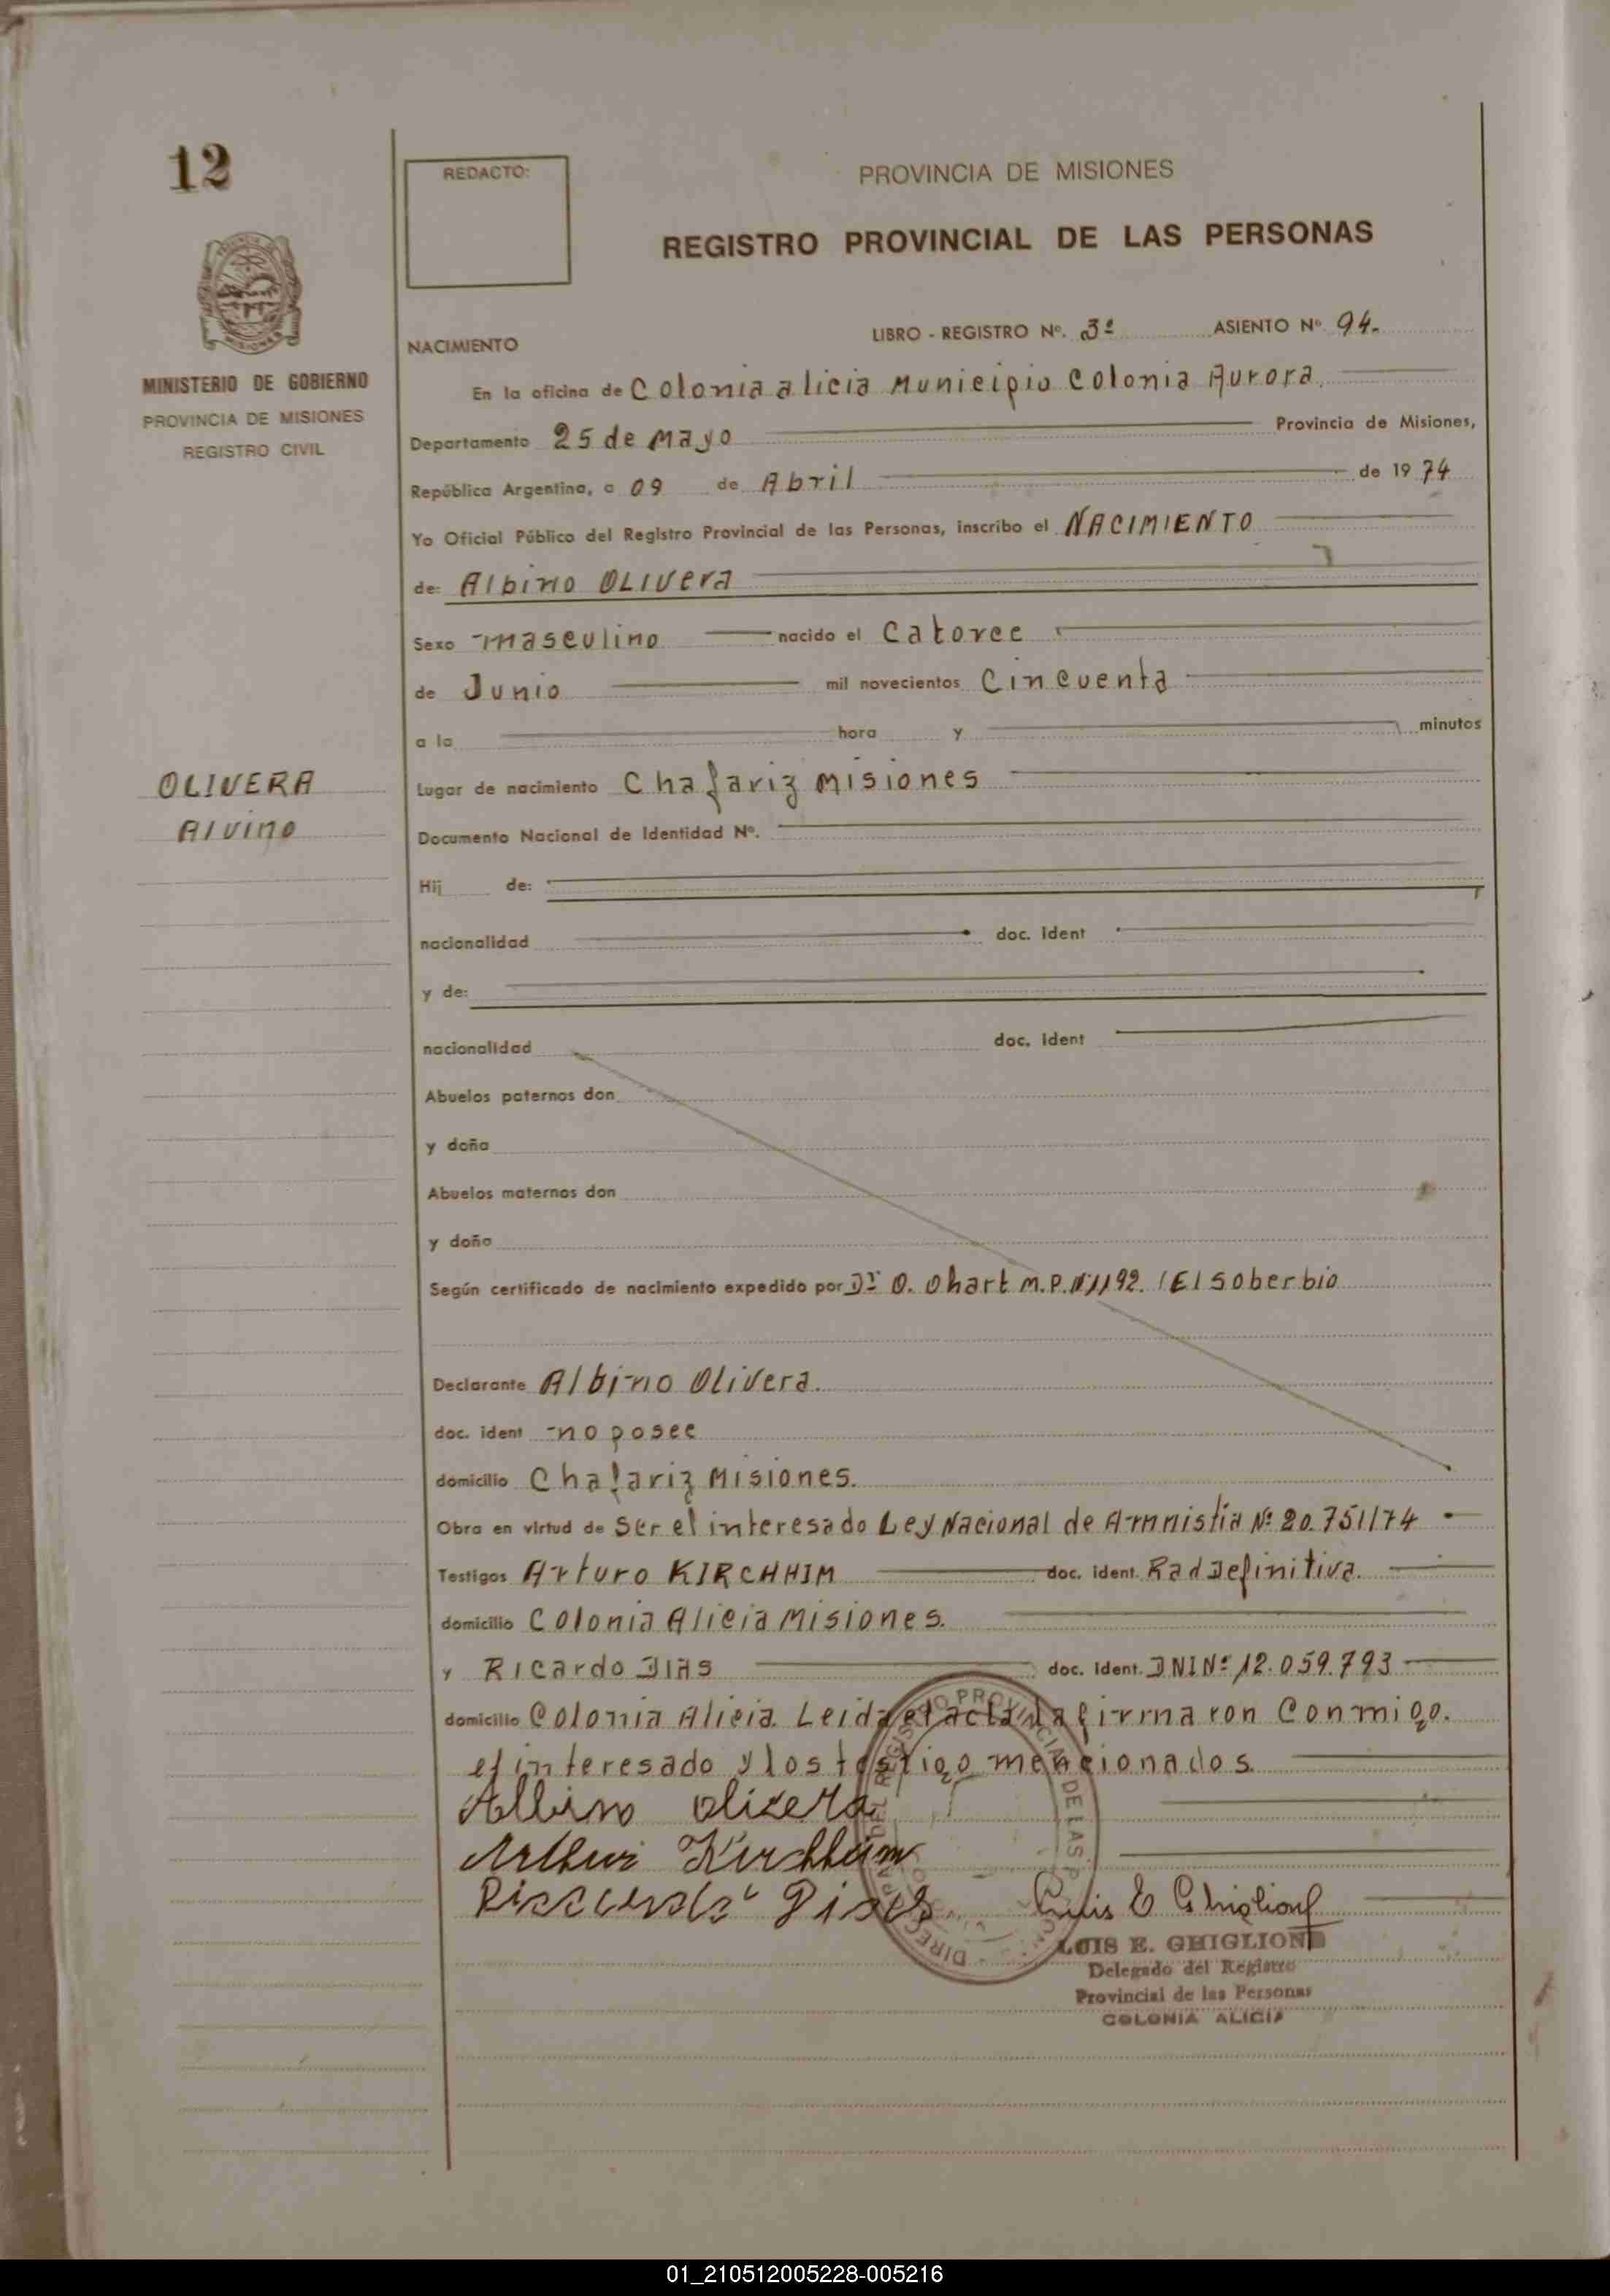 12
REDACTO:
PROVINCIA DE MISIONES
REGISTRO PROVINCIAL DE LAS PERSONAS
MINISTERIO DE GOBIERNO
PROVINCIA DE MISIONES
REGISTRO CIVIL
NACIMIENTO
LIBRO - REGISTRO Nº. 3º ASIENTO Nº 94.
En la oficina de Colonia alicia Municipio Colonia Aurora.
Departamento 25 de Mayo Provincia de Misiones,
República Argentina, a 09 de Abril de 1974
Yo Oficial Público del Registro Provincial de las Personas, inscribo el NACIMIENTO
de: Albino OLIVera
Sexo masculino nacido el Catorce
de Junio mil novecientos Cincuenta
a la hora y minutos
OLIVERA
Alvino
Lugar de nacimiento Chafariz Misiones
Documento Nacional de Identidad Nº.
Hij de:
nacionalidad doc. ident
y de:
nacionalidad doc. ident
Abuelos paternos don
y doña
Abuelos maternos don
y doña
Según certificado de nacimiento expedido por Dr O. Ohart M.P. 1192. El Soberbio
Declarante Albino Olivera.
doc. ident no posee
domicilio Chafariz Misiones.
Obra en virtud de Ser el interesado Ley Nacional de Amnistia Nº 20.751/74
Testigos Arturo KIRCHHIM doc. ident. Rad Definitiva.
domicilio Colonia Alicia Misiones.
y Ricardo DIAS doc. ident. DNI Nº 12.059.793
domicilio Colonia Alicia. Leida el acta la firmaron Conmigo.
el interesado y los testigo mencionados
Albino olivera
Arthur Kirchheim
Luis E Ghiglione
LUIS E. GHIGLIONE
Delegado del Registro
Provincial de las Personas
COLONIA ALICIA
01_210512005228-005216